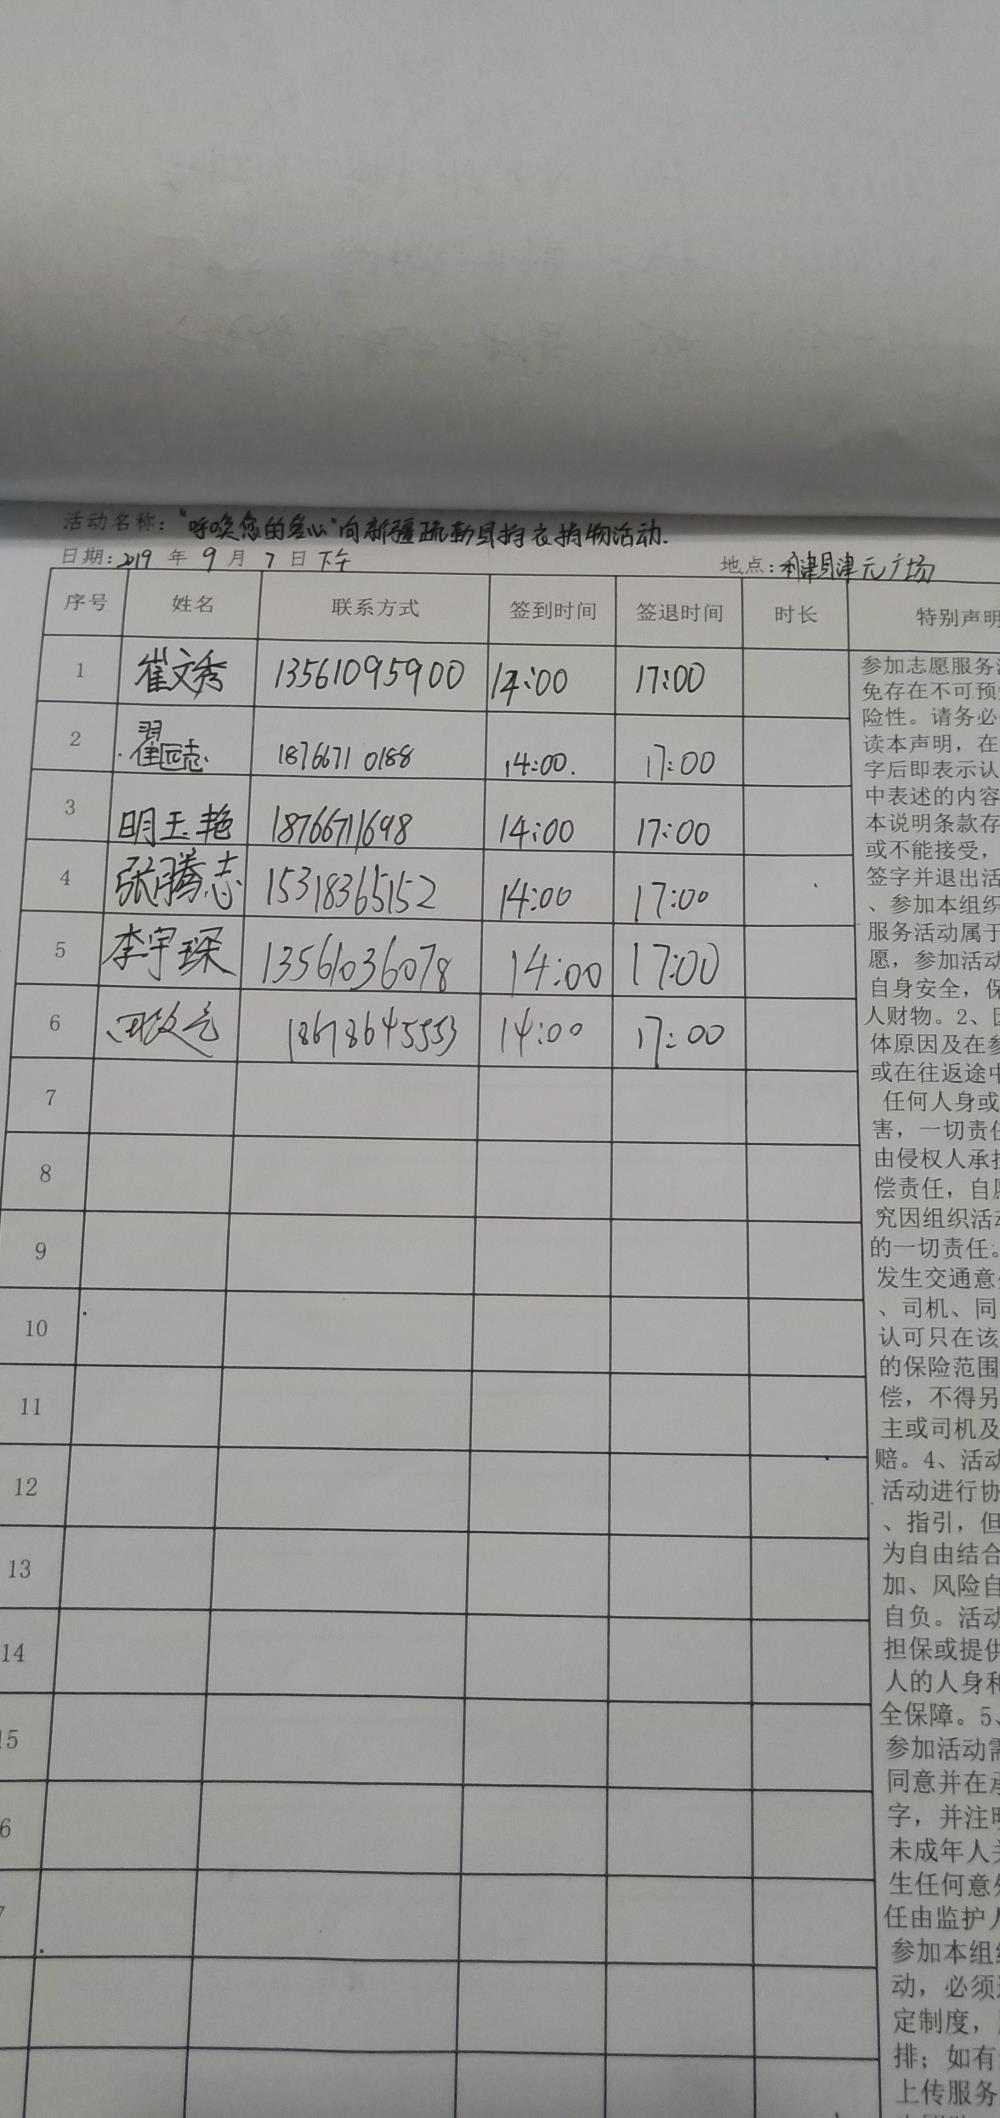 活动名称：“呼唤您的爱心”向新疆疏勒县捐衣捐物活动.
日期：2019 年 9 月 7 日 下午 地点：利津县津元广场
序号 姓名 联系方式 签到时间 签退时间 时长 特别声明
1 崔文秀 13561095900 14:00 17:00
2 翟志 18766710188 14:00. 17:00
3 明玉艳 18766711698 14:00 17:00
4 张腾志 15318365152 14:00 17:00
5 李宇琛 13561036078 14:00 17:00
6 18678645553 14:00 17:00
7
8
9
10
11
12
13
14
15
6
7
参加志愿服务活
免存在不可预
险性。请务必
读本声明，在
字后即表示认
中表述的内容
本说明条款存
或不能接受，
签字并退出活
、参加本组织
服务活动属于
愿，参加活动
自身安全，保
人财物。2、因
体原因及在参
或在往返途中
任何人身或
害，一切责任
由侵权人承担
偿责任，自愿
究因组织活动
的一切责任。
发生交通意外
、司机、同
认可只在该
的保险范围
偿，不得另
主或司机及
赔。4、活动
活动进行协
、指引，但
为自由结合
加、风险自
自负。活动
担保或提供
人的人身和
全保障。5、
参加活动需
同意并在承
字，并注明
未成年人
生任何意外
任由监护人
参加本组织
动，必须
定制度，
排；如有
上传服务